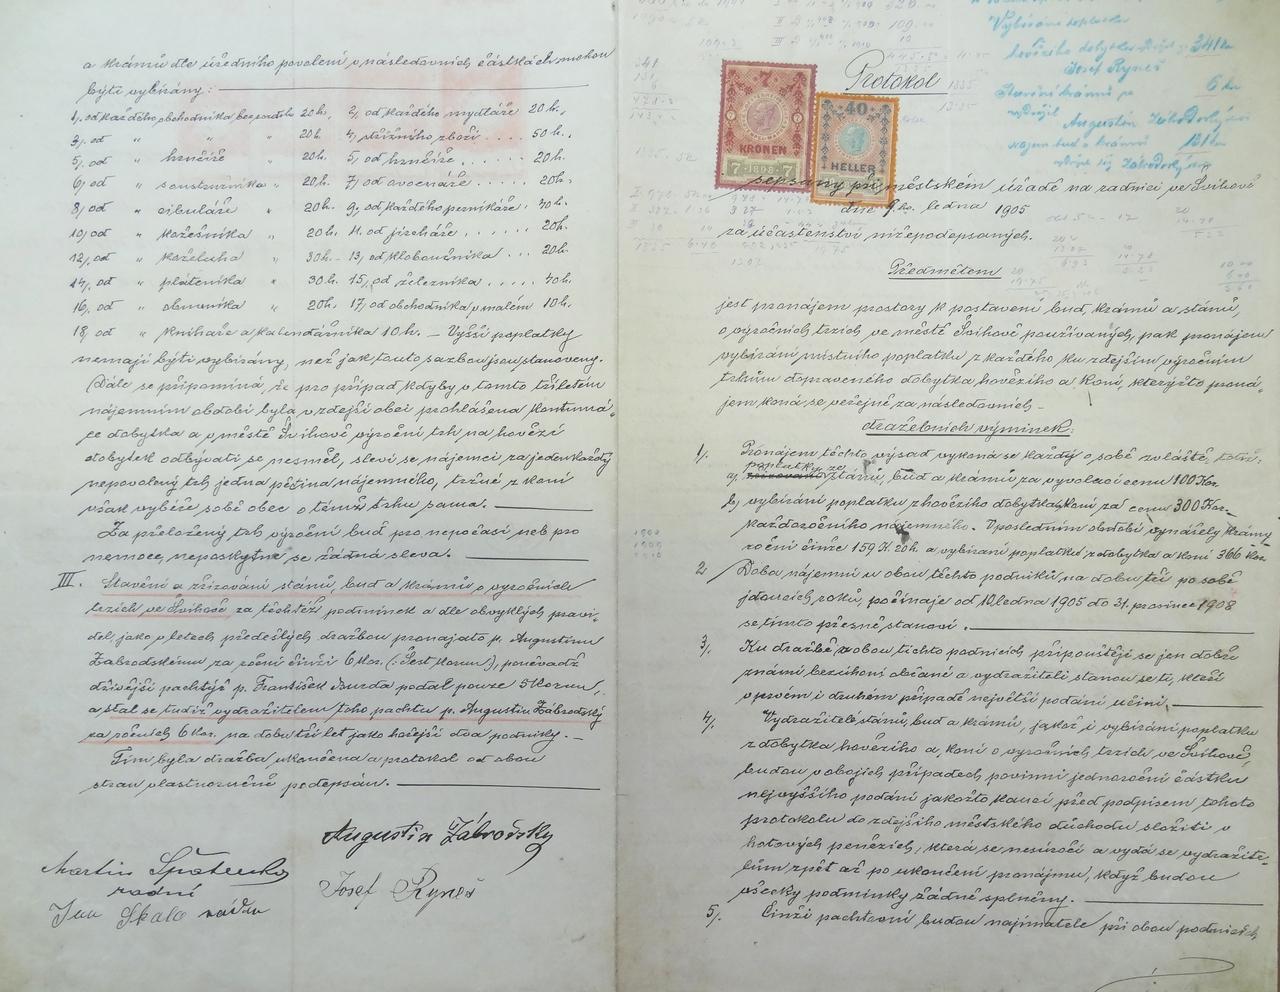 a krámů dle úředního povolení v následovních částkách mohou
býti vybírány:
1, od každého obchodníka bez rozdílu 20 h., 2, od každého mydláře 20 h.,
3, od " " 20 h. 4, střižního zboží 50 h.,
5, od " hrnčíře 20 h. 5, od hrnčíře 20 h.
6, od " " 20 h. 7, od ovocnáře 20 h.
8, od " cibuláře " 20 h. 9, od každého perníkáře 40 h.
10, od " kožešníka " 20 h. 11, od jircháře 20 h.
12, od " koželuha " 30 h. 13, od kloboučníka 20 h.
14, od " pláteníka " 30 h. 15, od železníka 40 h.
16, od " obuvníka " 20 h. 17, od obchodníka v malém 10 h.
18, od " knihaře a kalendárníka 10 h. – Vyšší poplatky
nemají býti vybírány, než jak touto sazbou jsou stanoveny.
Dále se připomíná, že pro případ kdyby v tomto tříletém
nájemním období byla v zdejší obci prohlášena kontumá-
ce dobytka a v městě Švihově výroční trh na hovězí
dobytek odbývati se nesměl, sleví se nájemci za jedenkaždý
nepovolený trh jedna pětina nájemného, tržné z koní
však vybéře sobě obec o témž trhu sama.
Za přeložený trh výroční buď pro nepočasí neb pro
nemoce, neposkytne se žádná sleva.
III. Stavění a zřizování stánů, bud a krámů o výročních
trzích ve Švihově za těchtéž podmínek a dle obvyklých pravi-
del, jako v letech předešlých dražbou pronajato p. Augustinu
Zábrodskému za roční činži 6 Kor. (: Šest korun :), poněvadž
dřívější pachtýř p. František Burda podal pouze 5 Korun,
a stal se tudíž vydražitelem toho pachtu p. Augustin Zábrodský
za ročních 6 Kor. na dobu tří let jako hořejší dva podniky. –
Tím byla dražba ukončena a protokol od obou
stran vlastnoručně podepsán.
Augustin Zábrodský
Martin
radní
Josef Ryneš
Jan Skala radní
Protokol
7
KRONEN
7 1898 7
40
HELLER
Vybírání poplatku
hovězího dobytka
341
Josef Ryneš
6
Augustin Zábrodský
sepsaný při městském úřadě na radnici ve Švihově
dne 9. ho ledna 1905
za účastenství nížepodepsaných.
Předmětem
jest pronájem prostory k postavení bud, krámů a stánů,
o výročních trzích ve městě Švihově používaných, pak pronájem
vybírání místního poplatku z každého ku zdejším výročním
trhům dopraveného dobytka hovězího a koní, kterýžto proná-
jem koná se veřejně za následovních –
dražebních výminek:
1, Pronájem těchto výsad vykoná se každý o sobě zvláště, totiž:
poplatky ze
a, stánů, bud a krámů za vyvolací cenu 100 Kor.
b, vybírání poplatku z hovězího dobytka, koní za cenu 300 Kor.
každoročního nájemného. V posledním období vynášely krámy
roční činže 159 K. 20 h. a vybírání poplatku z dobytka a koní 366 Kor.
2, Doba nájemní u obou těchto podniků na dobu tří po sobě
jdoucích roků, počínaje od 10. ledna 1905 do 31. prosince 1908
se tímto přesně stanoví.
3, Ku dražbě obou těchto podnicích připouštějí se jen dobře
známí bezúhonní občané a vydražiteli stanou se ti, kteří
v prvém i druhém případě největší podání učiní.
4, Vydražitelé stánů, bud a krámů, jakož i vybírání poplatku
z dobytka hovězího a koní o výročních trzích ve Švihově,
budou v obojích případech povinni jednoroční částku
nejvyššího podání jakožto kauci před podpisem tohoto
protokolu do zdejšího městského důchodu složiti v
hotových penězích, která se nesúročí a vydá se vydražite-
lům zpět až po ukončení pronájmu, když budou
všecky podmínky řádně splněny.
5, Činži pachtovní budou najímatelé při obou podnicích